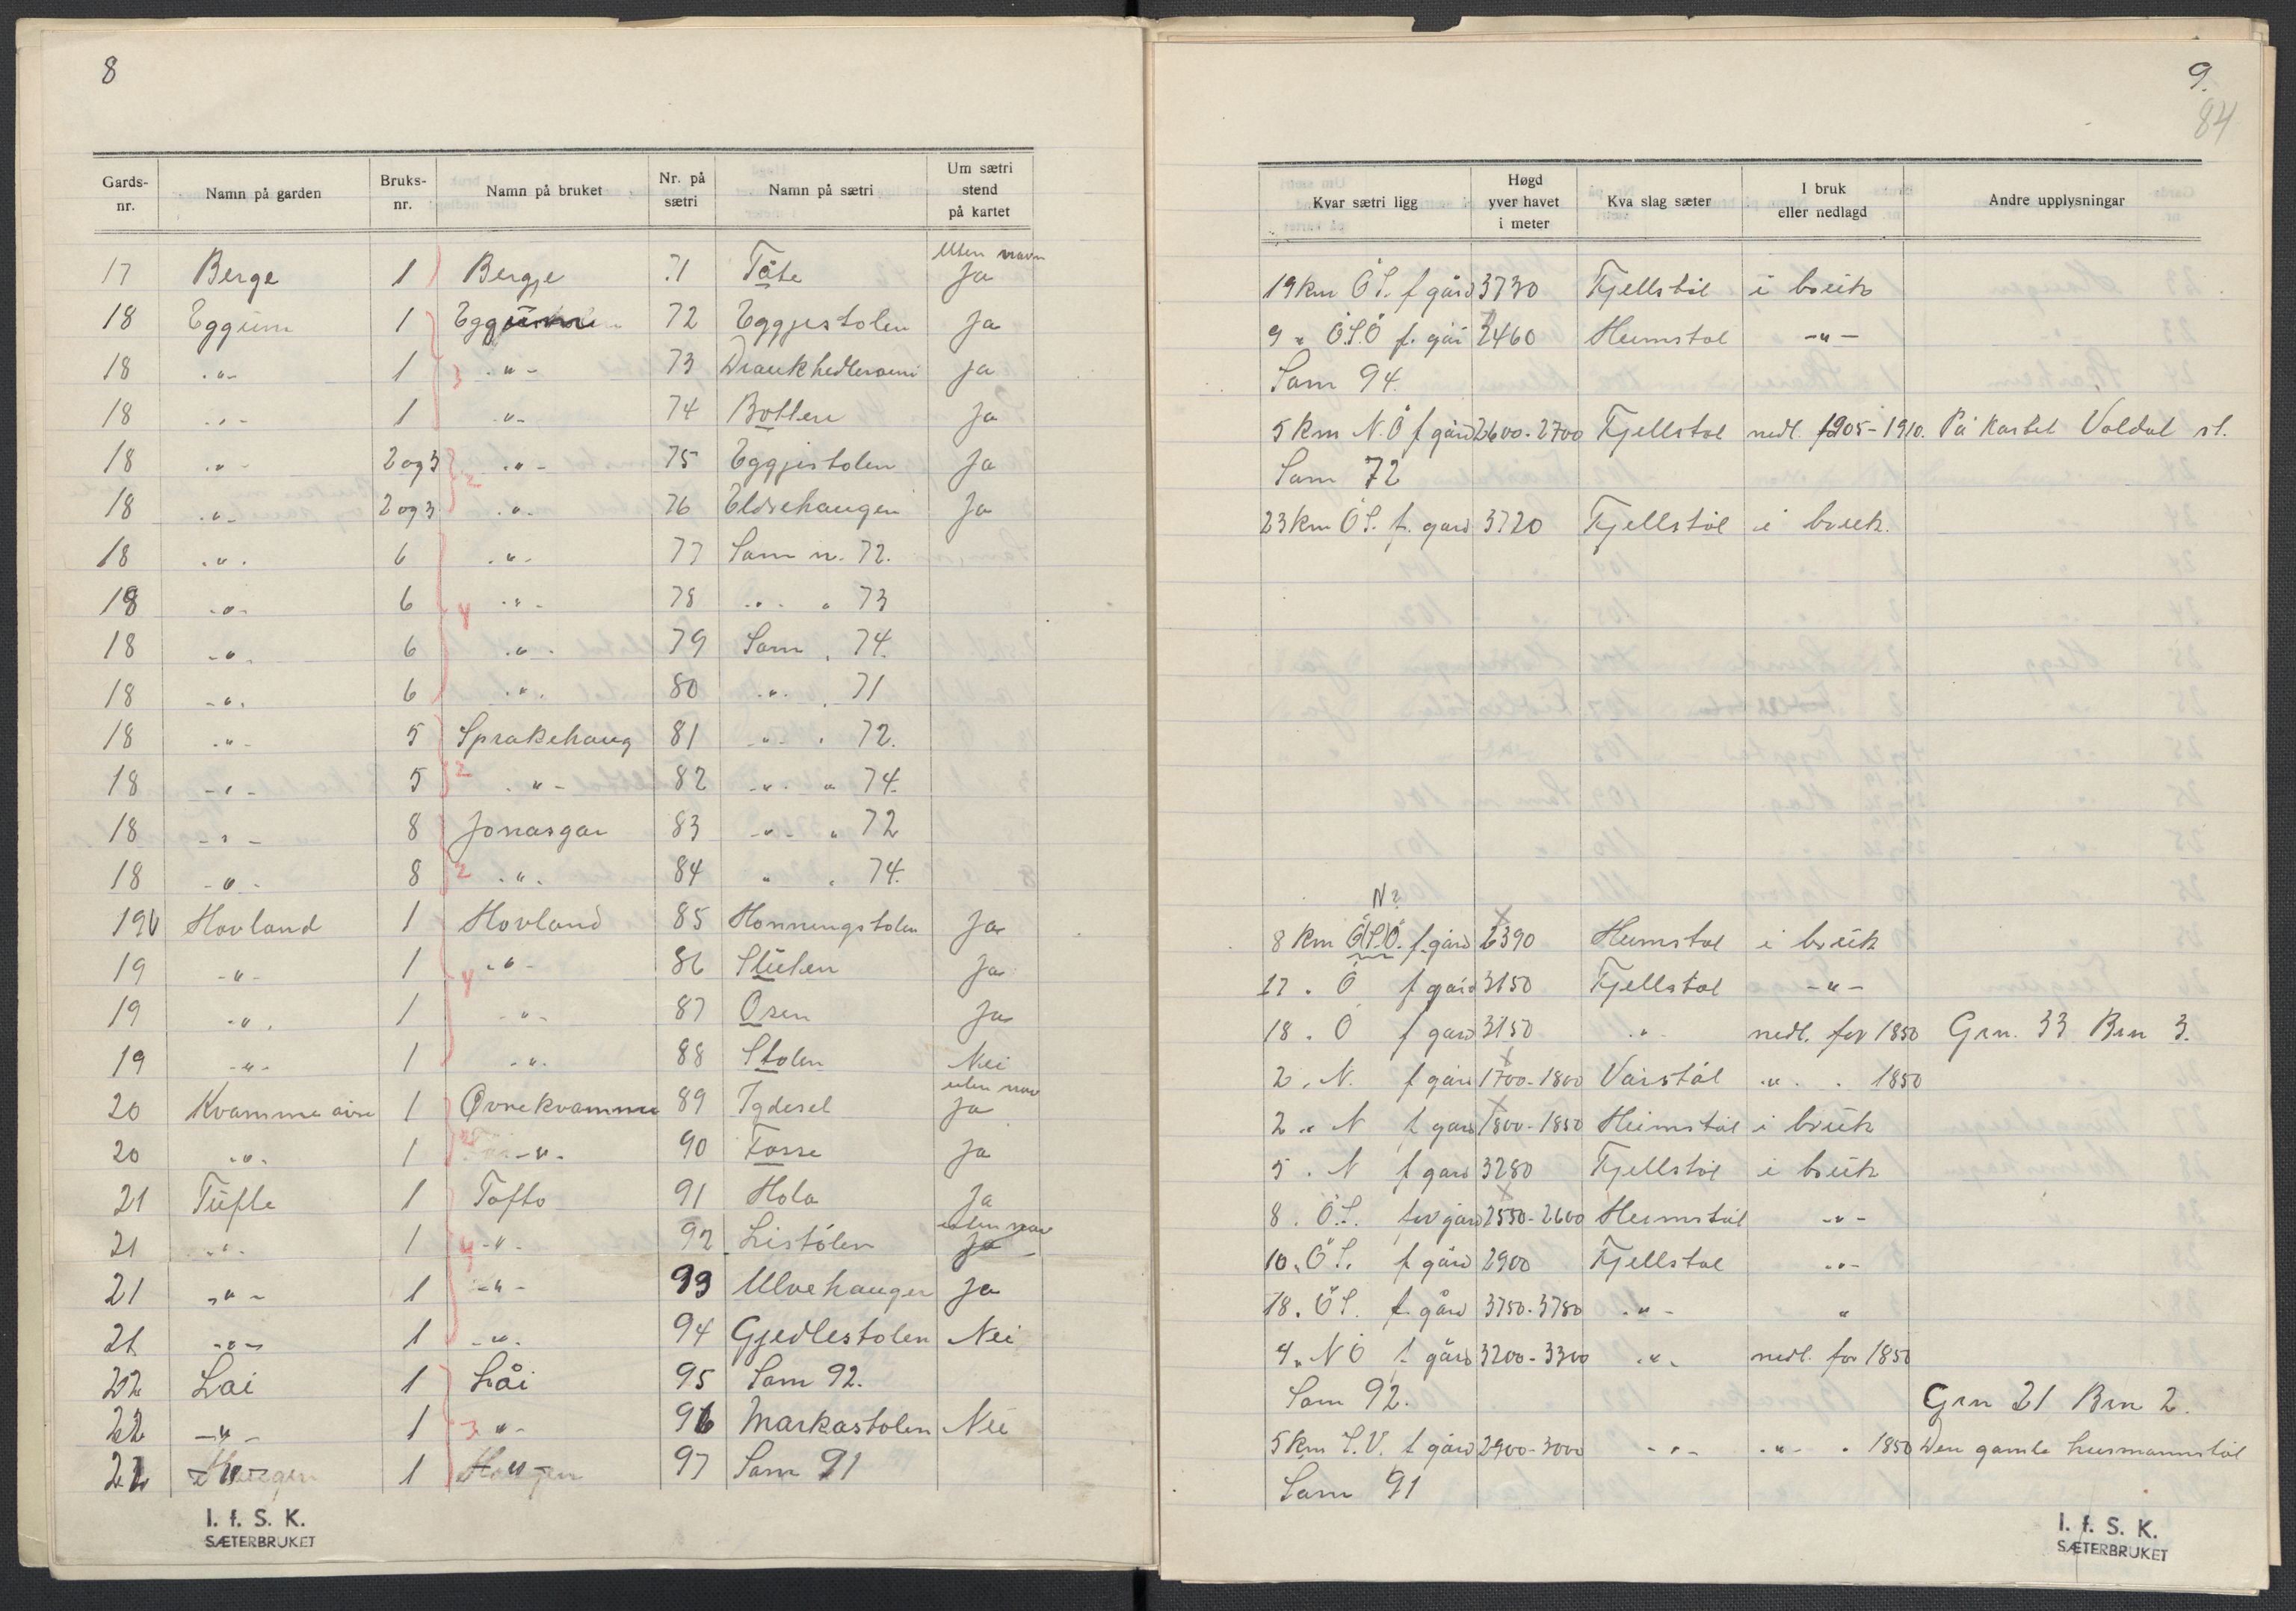 8
Gards-nr. Namn på garden Bruks-nr. Namn på bruket Nr. på sætri Namn på sætri Um sætri stend på kartet
17 Berge 1 Bergje 71 Tåte Uten navn Ja
18 Eggum 1 72 Eggjestolen Ja
18 -"- 1 3 -"- 73 Ja
18 -"- 1 -"- 74 Botlen Ja
18 -"- 2 og 3 2 -"- 75 Eggjestolen Ja
18 -"- 2 og 3 -"- 76 Eldrehaugen Ja
18 -"- 6 -"- 77 Sam n. 72.
18 -"- 6 4 -"- 78 -"- " 73
18 -"- 6 -"- 79 Sam " 74.
18 -"- 6 -"- 80 -"- " 71
18 -"- 5 Sprakehaug 81 -"- " 72.
18 -"- 5 2 -"- 82 -"- " 74.
18 -"- 8 Jonasgar 83 -"- " 72
18 -"- 8 2 -"- 84 " " 74.
19 V Hovland 1 Hovland 85 Honningstolen Ja
19 -"- 1 4 -"- 86 Ja
19 -"- 1 -"- 87 Osen Ja
19 -"- 1 -"- 88 Stolen Nei
20 Kvamme øvre 1 Øvre Kvamme 89 Igdesel uten nav Ja
20 -"- 1 -"- 90 Fosse Ja
21 Tufte 1 Tofto 91 Hola Ja
21 -"- 1 4 -"- 92 Listölen uten nav Ja
21 -"- 1 -"- 93 Ulvehaugen Ja
21 -"- 1 -"- 94 Gjedlestolen Nei
22 Lai 1 Låi 95 Sam 92.
22 -"- 1 3 -"- 96 Markastolen Nei
22 -"- 1 -"- 97 Sam 91
I. f. S. K.
SÆTERBRUKET
9.
84
Kvar sætri ligg Høgd yver havet i meter Kva slag sæter I bruk eller nedlagd Andre upplysningar
19 km Ö S. f gård 3730 Fjellstöl i bruk
9 " Ö.S.Ö f. går 2460 Heimstol -"-
Sam 94.
5 km N.Ö f gård 2600-2700 Fjellstol nedl. 1905-1910. På kartet Valdal st.
Sam 72
23 km Ö S. f. gard 3720 Fjellstöl i bruk.
N?
8 km Ö.S.Ö. f. gård 2390 Heimstol i bruk
17 . Ö f gård 3150 Fjellstol -"-
18 . Ö f gard 3150 -"- nedl. for 1850 Grn. 33 Brn 3.
2 . N. f gård 1700-1800 Vårstöl -"- . 1850
2 " N f gard 1800-1850 Heimstöl i bruk
5 . N f gard 3280 Fjellstöl i bruk
8 . Ö.S. for gård 2550-2600 Heimstöl -"-
10 " Ö S. f gård 2900 Fjellstol -"-
18 . Ö S. f. gård 3750-3780 -"- "
4 " N Ö f gård 3200-3300 -"- nedl. for 1850
Sam 92. Grn 21 Brn 2.
5 km S.V. f gård 2900-3000 -"- -"- . 1850 Den gamle husmannstöl
Sam 91
I. f. S. K.
SÆTERBRUKET